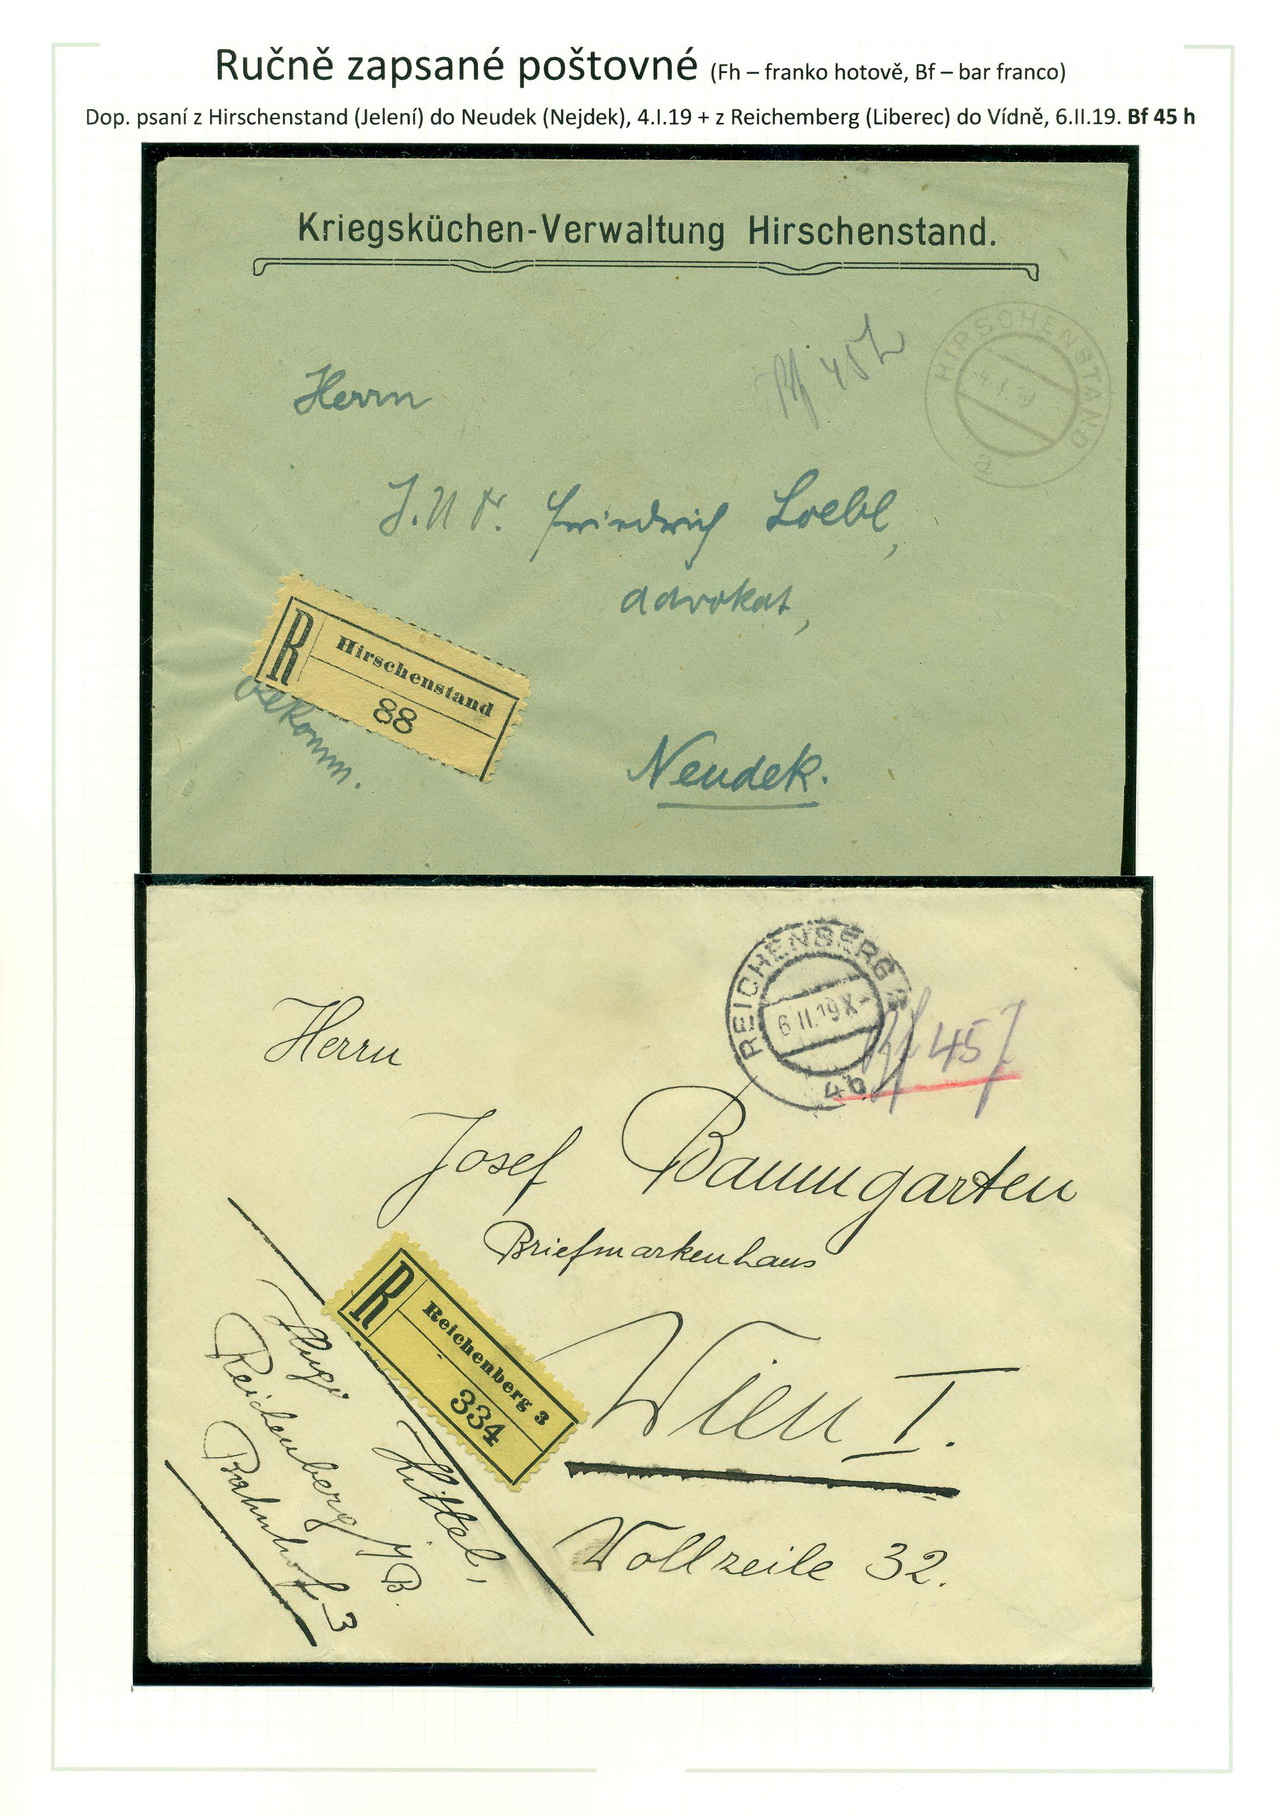 Ručně zapsané poštovné (Fh – franko hotově, Bf – bar franco)
Dop. psaní z Hirschenstand (Jelení) do Neudek (Nejdek), 4.I.19 + z Reichemberg (Liberec) do Vídně, 6.II.19. Bf 45 h
Kriegsküchen-Verwaltung Hirschenstand.
HIRSCHENSTAND
4.I.19
e
Bf 45 h
Herrn
J.U.Dr. Friedrich Loebl,
advokat,
R Hirschenstand
88
Rekomm.
Neudek.
REICHENBERG 3
6 II.19 X-
4b
Bf 45
Herrn
Josef Baumgarten
Briefmarkenhaus
R Reichenberg 3
334
Wien I.
Wollzeile 32.
Kittel,
Reichenberg i/B.
Bahnhof 3